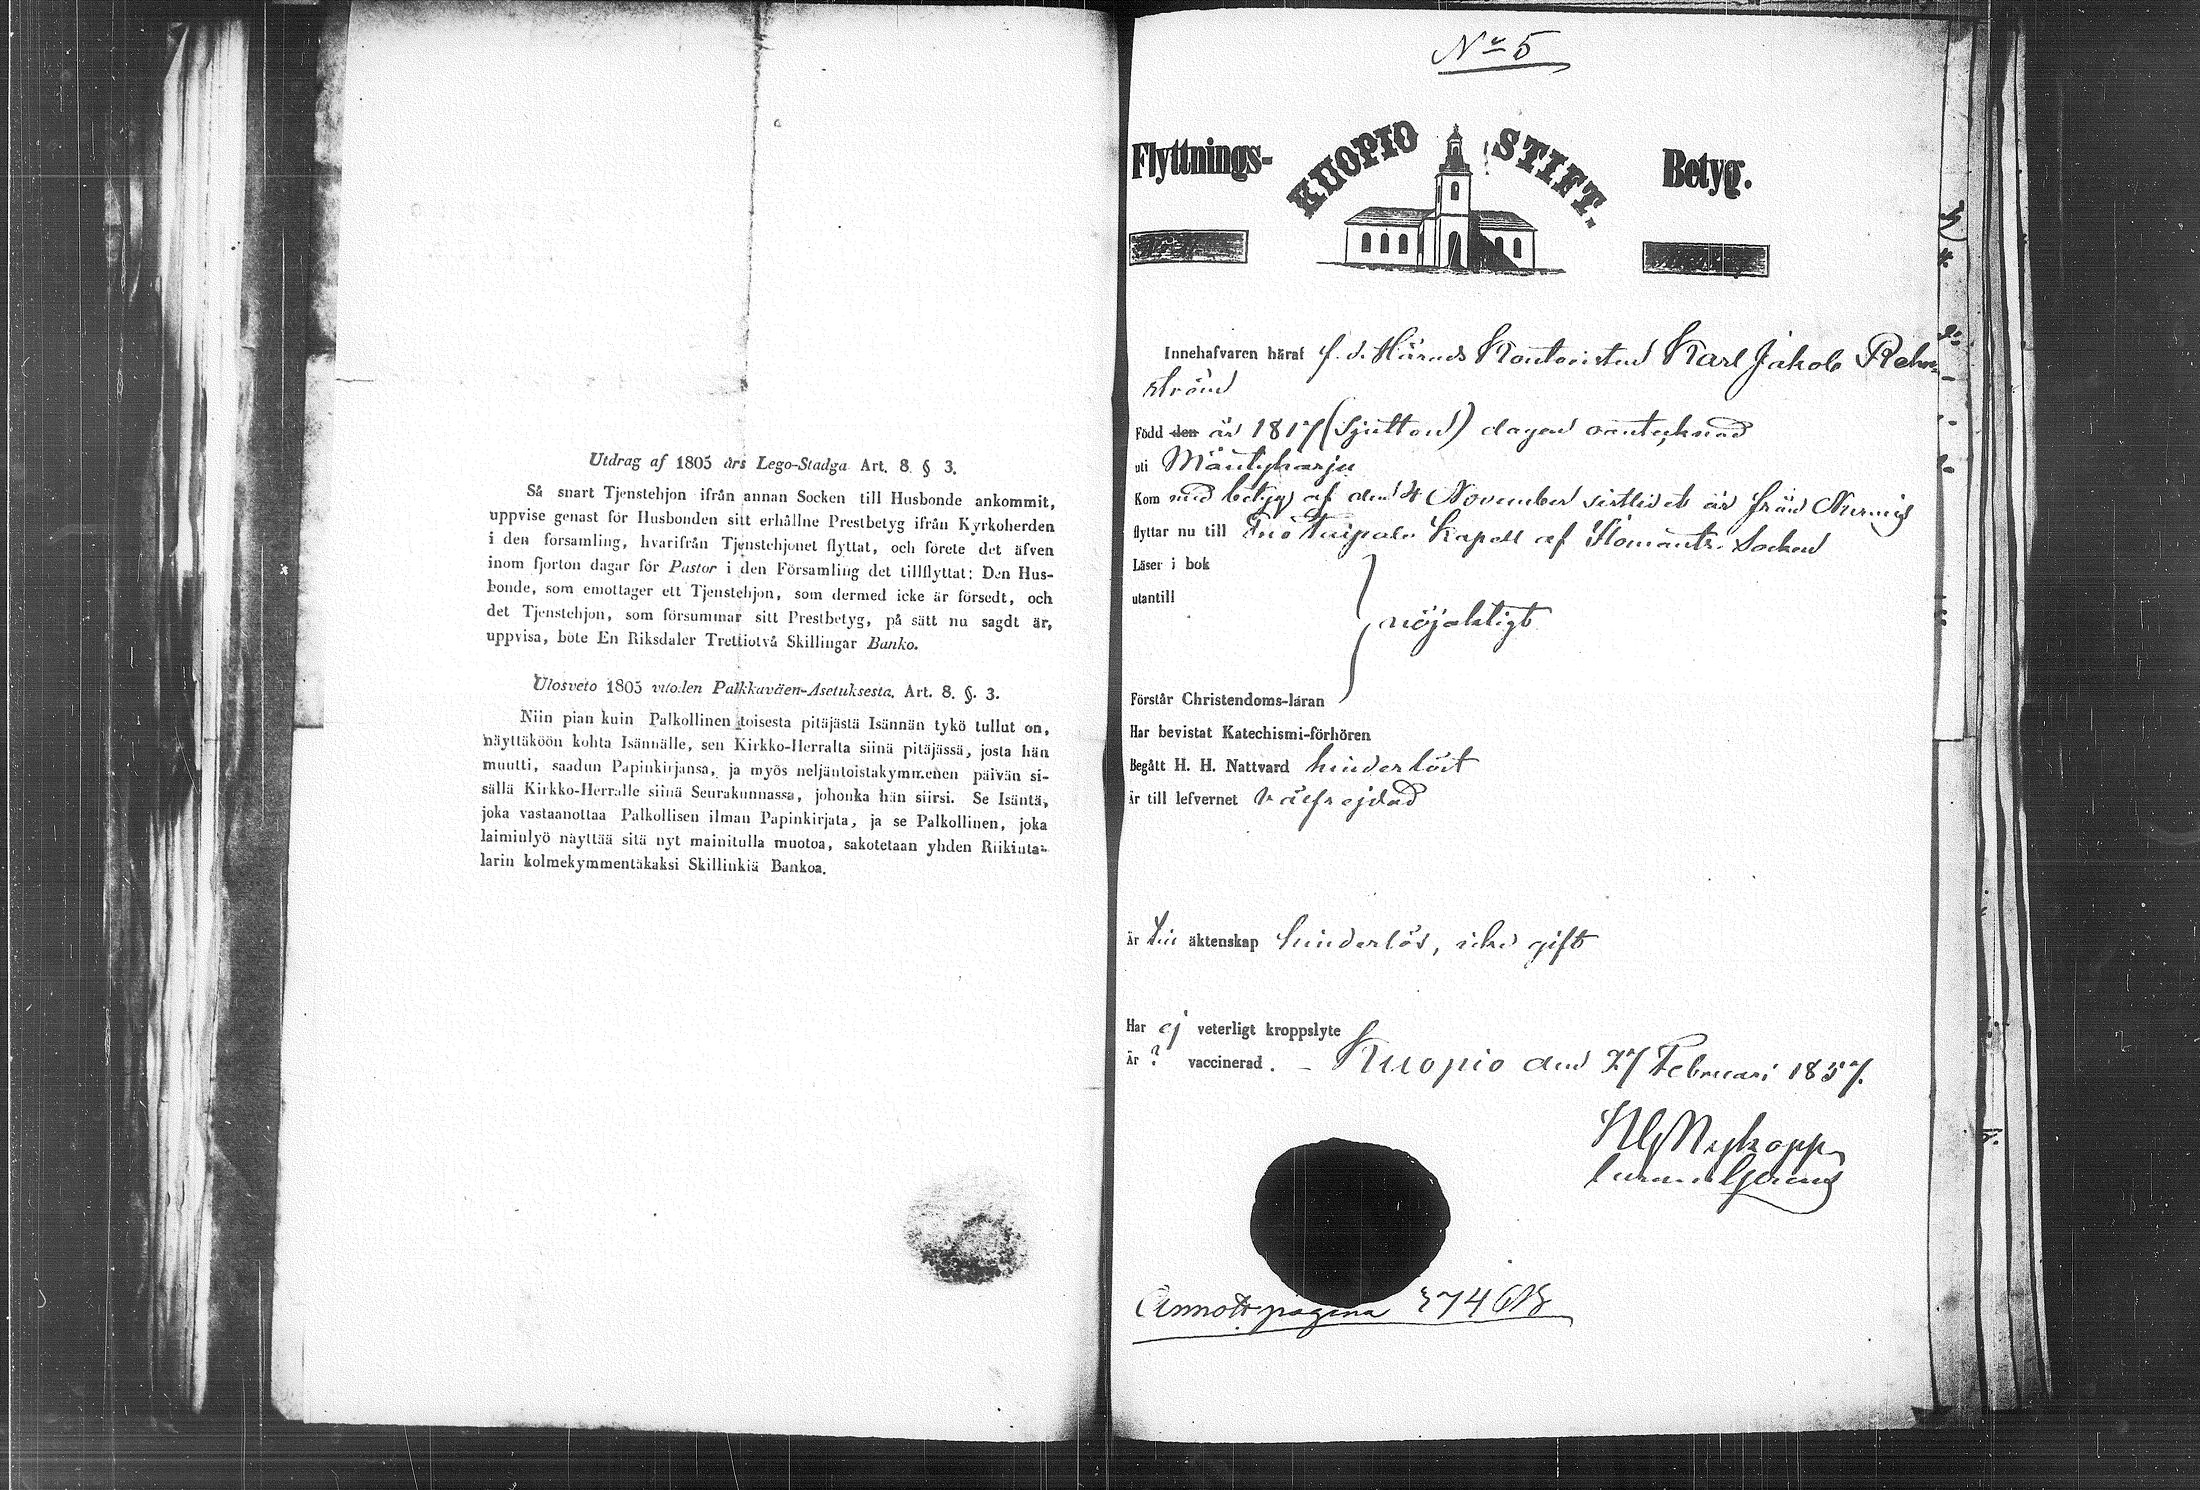 Utdrag af 1805 års Lego-Stadga Art. 8 § 3.
Så snart Tjenstehjon ifrån annan Socken till Husbonde ankommit,
uppvise genast för Husbonden sitt erhållne Prestbetyg ifrån Kyrkoherden
i den forsamling, hvarifrån Tjenstehjonet flyttat, och förete det äfven
inom fjorton dagar för Pastor i den Församling det tillflyttat: Den Hus-
bonde, som emottager ett Tjenstehjon, som dermed icke är försedt, och
det Tjenstehjon, som försummar sitt Prestbetyg, på sätt nu sagdt är,
uppvisa, böte En Riksdaler Trettiotvå Skillingar Banko.
Ulosveto 1805 vuoden Palkkaväen-Asetuksesta. Art. 8. §. 3.
Niin pian kuin Palkollinen toisesta pitäjästä Isännän tykö tullut on,
näyttäköön kohta Isännälle, sen Kirkko-Herralta siinä pitäjässä, josta hän
muutti, saadun Papinkirjansa, ja myös neljäntoistakymmenen päivän si-
sällä Kirkko-Herralle siinä Seurakunnassa, johonka hän siirsi. Se Isäntä,
joka vastaanottaa Palkollisen ilman Papinkirjata, ja se Palkollinen, joka
laiminlyö näyttää sitä nyt mainitulla muotoa, sakotetaan yhden Riikinta-
larin kolmekymmentäkaksi Skillinkiä Bankoa.
No 5
Flyttnings- KUOPIO STIFT. Betyg.
Innehafvaren häraf f. d. Härads Kontoristen Karl Jakob Rehn-
ström
Född den år 1817 (Sjutton) dagen oantecknad
uti Mäntyharju
Kom med betyg af den 4 November sistlidet år från Nurmis
flyttar nu till Eno Kapell af Ilomants Socken
Läser i bok
utantill
nöjaktigt
Förstår Christendoms-läran
Har bevistat Katechismi-förhören
Begått H. H. Nattvard hinderlöst
Är till lefvernet välfrejdad
Är till äktenskap hinderlös, icke gift
Har ej veterligt kroppslyte
Är ? vaccinerad. – Kuopio den 27 Februari 1857.
Nykopp
Annot. pagina 374